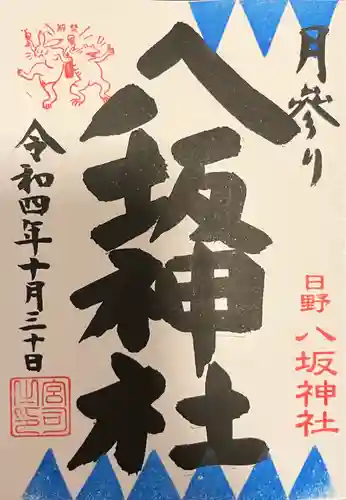 月参り
八坂神社
日野
八坂神社
令和四年十月三十日
宮司之印